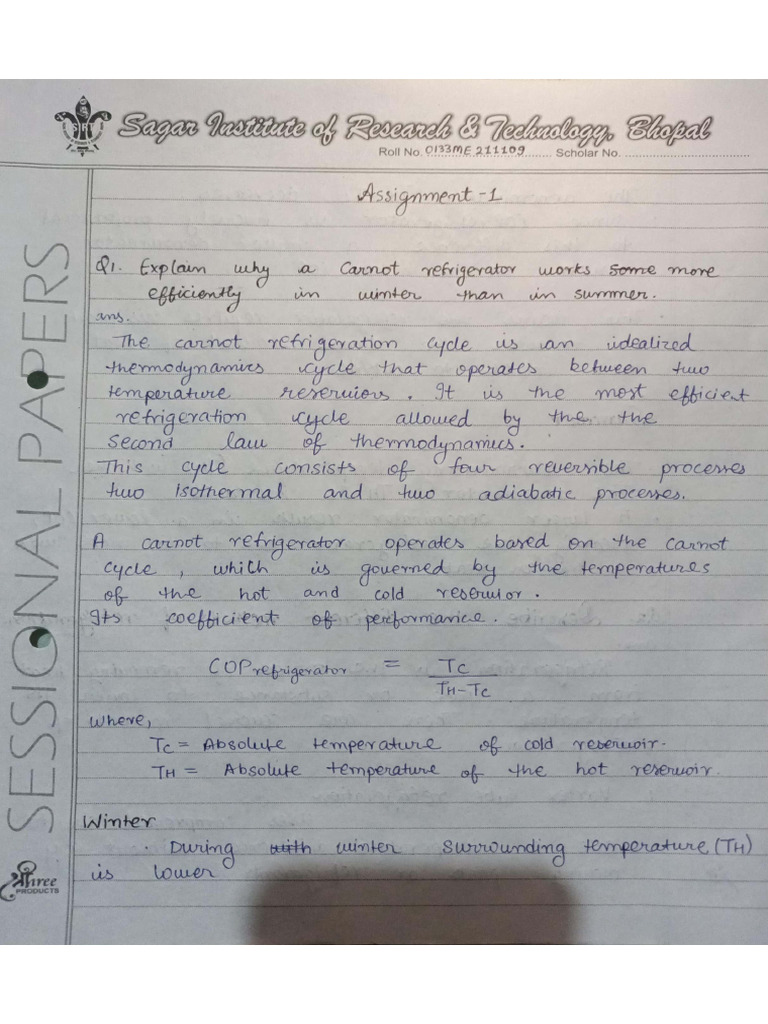 Sagar Institute of Research & Technology, Bhopal
SIRT
Roll No. 0133ME211109 Scholar No.
Assignment -1
Q1. Explain why a Carnot refrigerator works some more
efficiently in winter than in summer.
ans.
The carnot refrigeration cycle is an idealized
thermodynamics cycle that operates between two
temperature reservios. It is the most efficient
refrigeration cycle allowed by the the
second law of thermodynamics.
This cycle consists of four reversible processes
two isothermal and two adiabatic processes.
A carnot refrigerator operates based on the carnot
cycle, which is governed by the temperatures
of the hot and cold reservior.
Its coefficient of performance.
COP refrigerator = TC
TH-TC
where,
TC = Absolute temperature of cold reservoir.
TH = Absolute temperature of the hot reservoir.
Winter
. During with winter surrounding temperature (TH)
is lower
SESSIONAL PAPERS
Shree
PRODUCTS